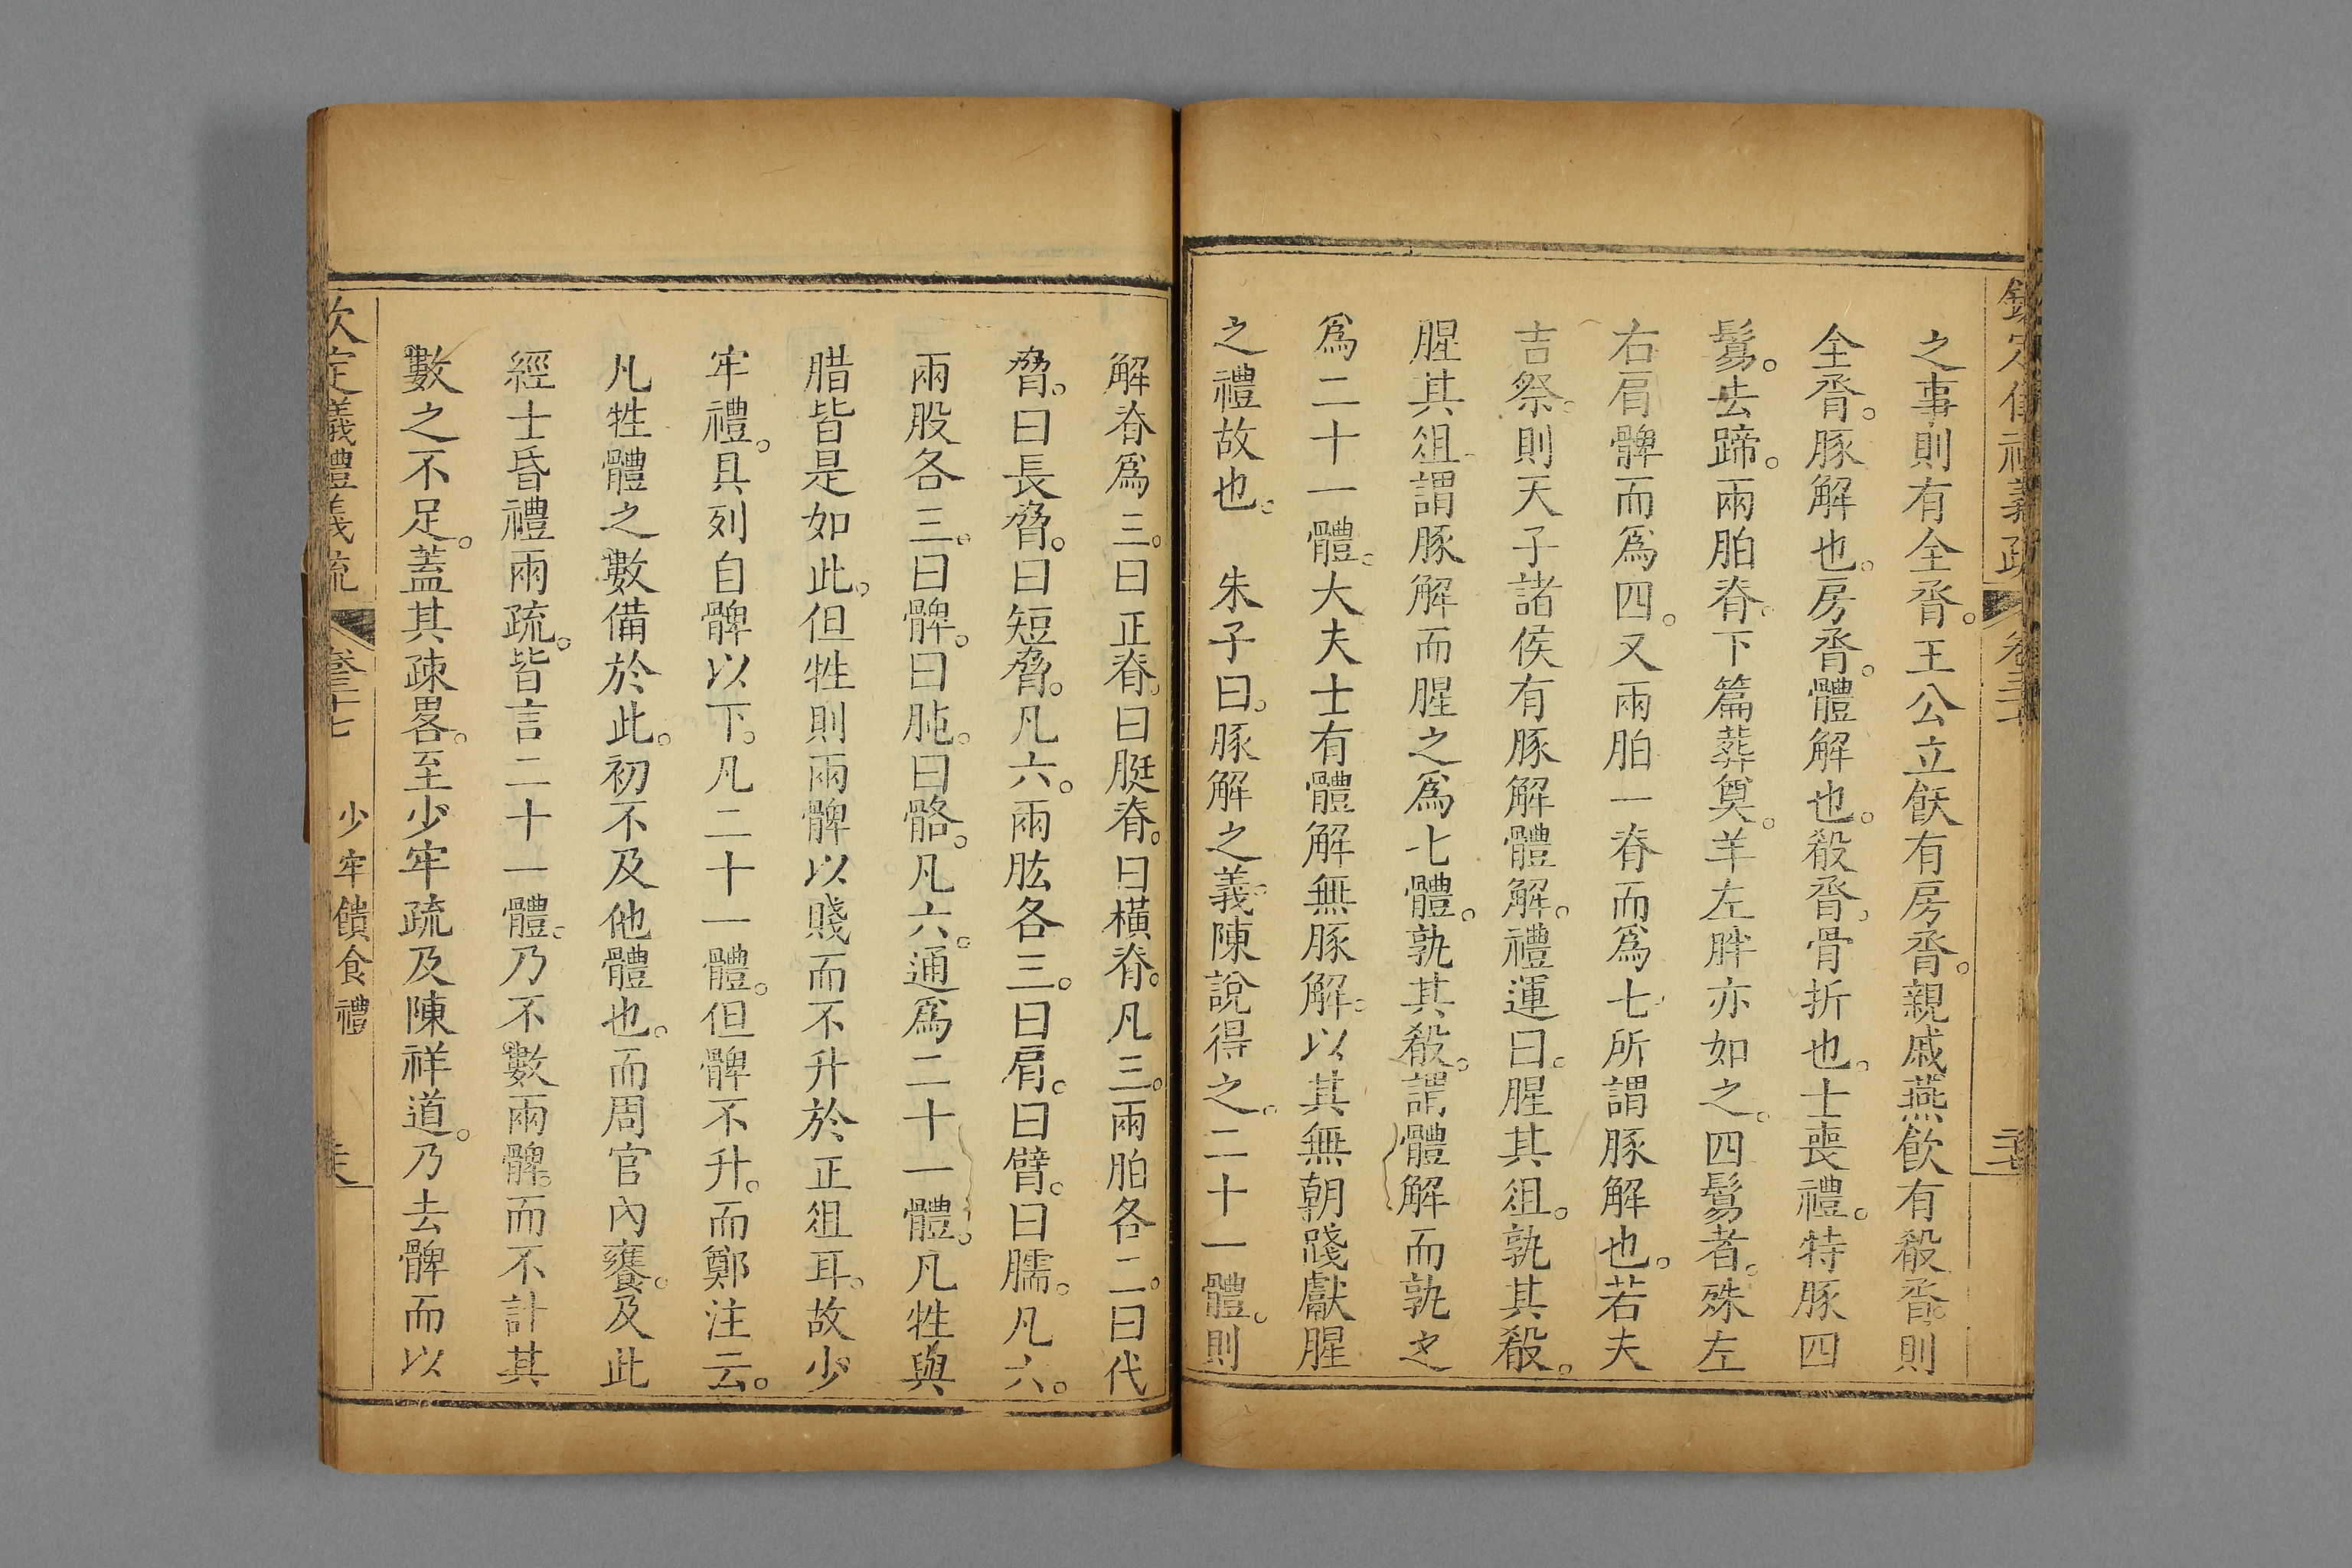 之事則有全脀。王公立飫有房脀。親戚燕飲有殽脀。則
全脀。豚解也。房脀。體解也。殽脀。骨折也。士喪禮。特豚四
鬄。去蹄。兩胉脊。下篇葬奠。羊左胖亦如之。四鬄者。殊左
右肩髀而爲四。又兩胉一脊而爲七所謂豚解也。若夫
吉祭。則天子諸侯有豚解體解。禮運曰。腥其俎。孰其殽。
腥其俎謂豚解而腥之爲七體。孰其殽。謂體解而孰之
爲二十一體。大夫士有體解無豚解。以其無朝踐獻腥
之禮故也。　朱子曰。豚解之義。陳說得之。二十一體。則
解脊爲三。曰正脊。曰脡脊。曰橫脊。凡三。兩胉各二。曰代
脅。曰長脅。曰短脅。凡六。兩肱各三。曰肩。曰臂。曰臑。凡六。
兩股各三。曰髀。曰肫。曰胳。凡六。通爲二十一體。凡牲與
腊皆是如此。但牲則兩髀以賤而不升於正俎耳。故少
牢禮。具列自髀以下。凡二十一體。但髀不升。而鄭注云。
凡牲體之數備於此。初不及他體也。而周官內饔。及此
經士昏禮兩疏。皆言二十一體。乃不數兩髀。而不計其
數之不足。蓋其疎畧。至少牢疏及陳祥道。乃去髀而以
欽定儀禮義疏　卷三十七　少牢饋食禮